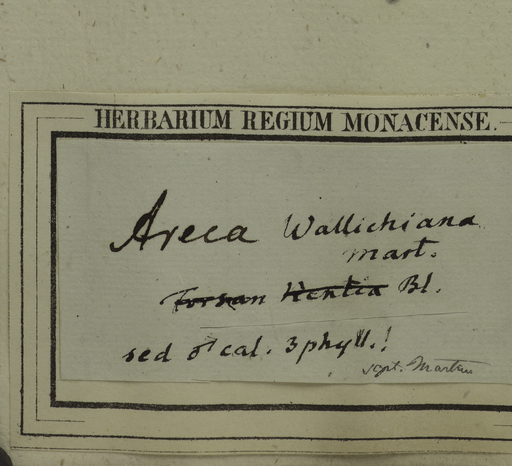 HERBARIUM REGIUM MONACENSE.
Areca Wallichiana
Mart.
Forsan Kentia Bl.
sed ♂ cal. 3phyll.!
scpt. Martius